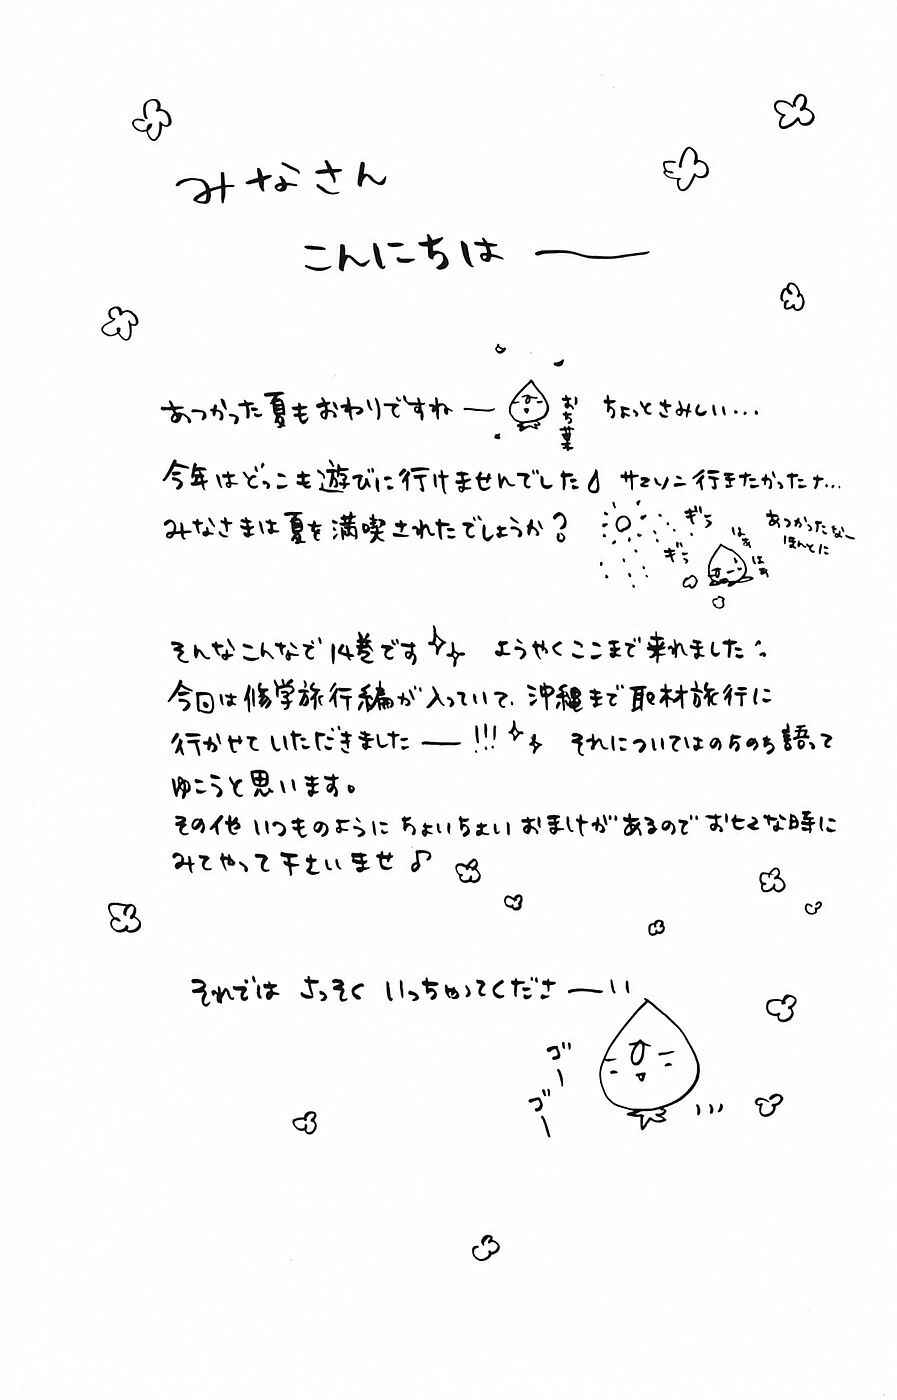 みなさん
こんにちは——
あつかった夏もおわりですね—
おち葉
ちょっとさみしい...
今年はどっこも遊びに行けませんでした サマソニ行きたかったナ...
みなさまは夏を満喫されたでしょうか?
ギラ
ギラ
はぁ
はぁ
あつかったなー
ほんとに
そんなこんなで14巻です ようやくここまで来れました
今回は修学旅行編が入っていて、沖縄まで取材旅行に
行かせていただきました—!!! それについてはのちのち語って
ゆこうと思います。
その他 いつものように ちょいちょい おまけがあるので おヒマな時に
みてやって下さいませ♪
それでは さっそく いっちゃってくださーいい
ゴー
ゴー